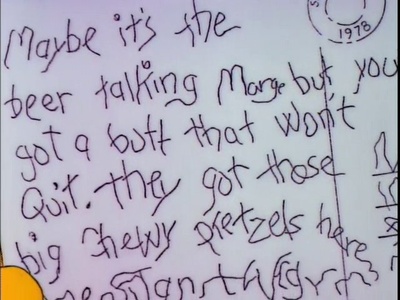 1978
Maybe it's the
beer talking Marge but you
got a butt that won't
Quit. they got those
big chewy pretzels here